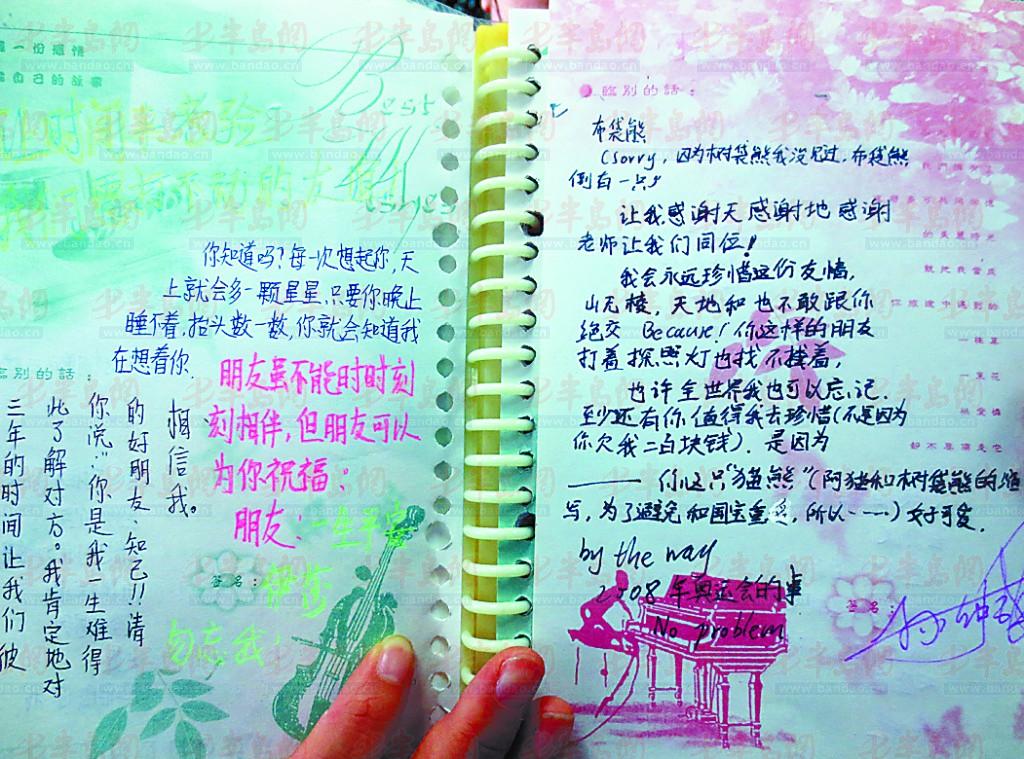 一份感情
自己的故事
Best
Wishes
你知道吗?每一次想起你,天
上就会多一颗星星,只要你晚上
睡不着,抬头数一数,你就会知道我
在想着你.
臨别的話:
朋友虽不能时时刻
刻相伴,但朋友可以
为你祝福:
朋友:一生平安
相信我。
的好朋友、知己!!请
你说:“你是我一生难得
此了解对方。我肯定地对
三年的时间让我们彼
签名:
勿忘我!
臨别的話:
布袋熊
(Sorry,因为树袋熊我没见过,布袋熊
倒有一只)
让我感谢天感谢地感谢
老师让我们同位!
我会永远珍惜这份友情,
山无棱,天地和也不敢跟你
绝交 Because!你这样的朋友
打着探照灯也找不着,
也许全世界我也可以忘记.
至少还有你值得我去珍惜(不是因为
你欠我二百块钱).是因为
——你这只“猫熊”(阿猫和树袋熊的缩
写,为了避免和国宝重名,所以……)好可爱.
by the way
2008年奥运会的事
No problem
的美麗時光
就把我當成
你旅途中遇到的
一株草
一朵花
签名:
半岛网
www.bandao.cn